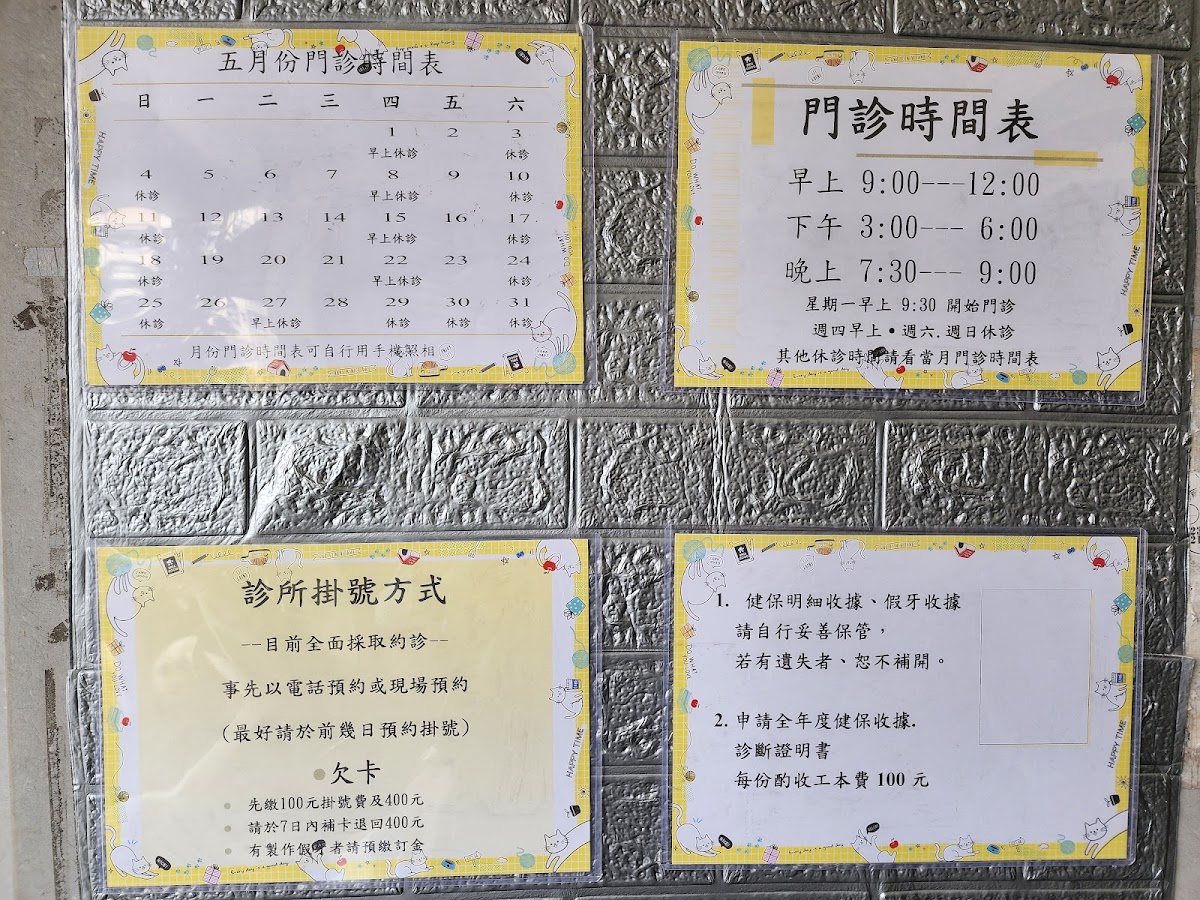 五月份門診時間表
日 一 二 三 四 五 六
1 2 3
早上休診 休診
4 5 6 7 8 9 10
休診 早上休診 休診
11 12 13 14 15 16 17
休診 早上休診 休診
18 19 20 21 22 23 24
休診 早上休診 休診
25 26 27 28 29 30 31
休診 早上休診 休診 休診 休診
月份門診時間表可自行用手機照相
HAPPY TIME
門診時間表
早上 9:00---12:00
下午 3:00--- 6:00
晚上 7:30--- 9:00
星期一早上 9:30 開始門診
週四早上•週六.週日休診
其他休診時間請看當月門診時間表
HAPPY TIME
診所掛號方式
--目前全面採取約診--
事先以電話預約或現場預約
(最好請於前幾日預約掛號)
•欠卡
• 先繳100元掛號費及400元
• 請於7日內補卡退回400元
• 有製作假牙者請預繳訂金
HAPPY TIME
1. 健保明細收據、假牙收據
請自行妥善保管，
若有遺失者、恕不補開。
2. 申請全年度健保收據.
診斷證明書
每份酌收工本費 100 元
HAPPY TIME